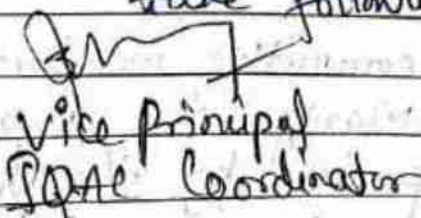 follow
Vice Principal
IQAC Coordinator